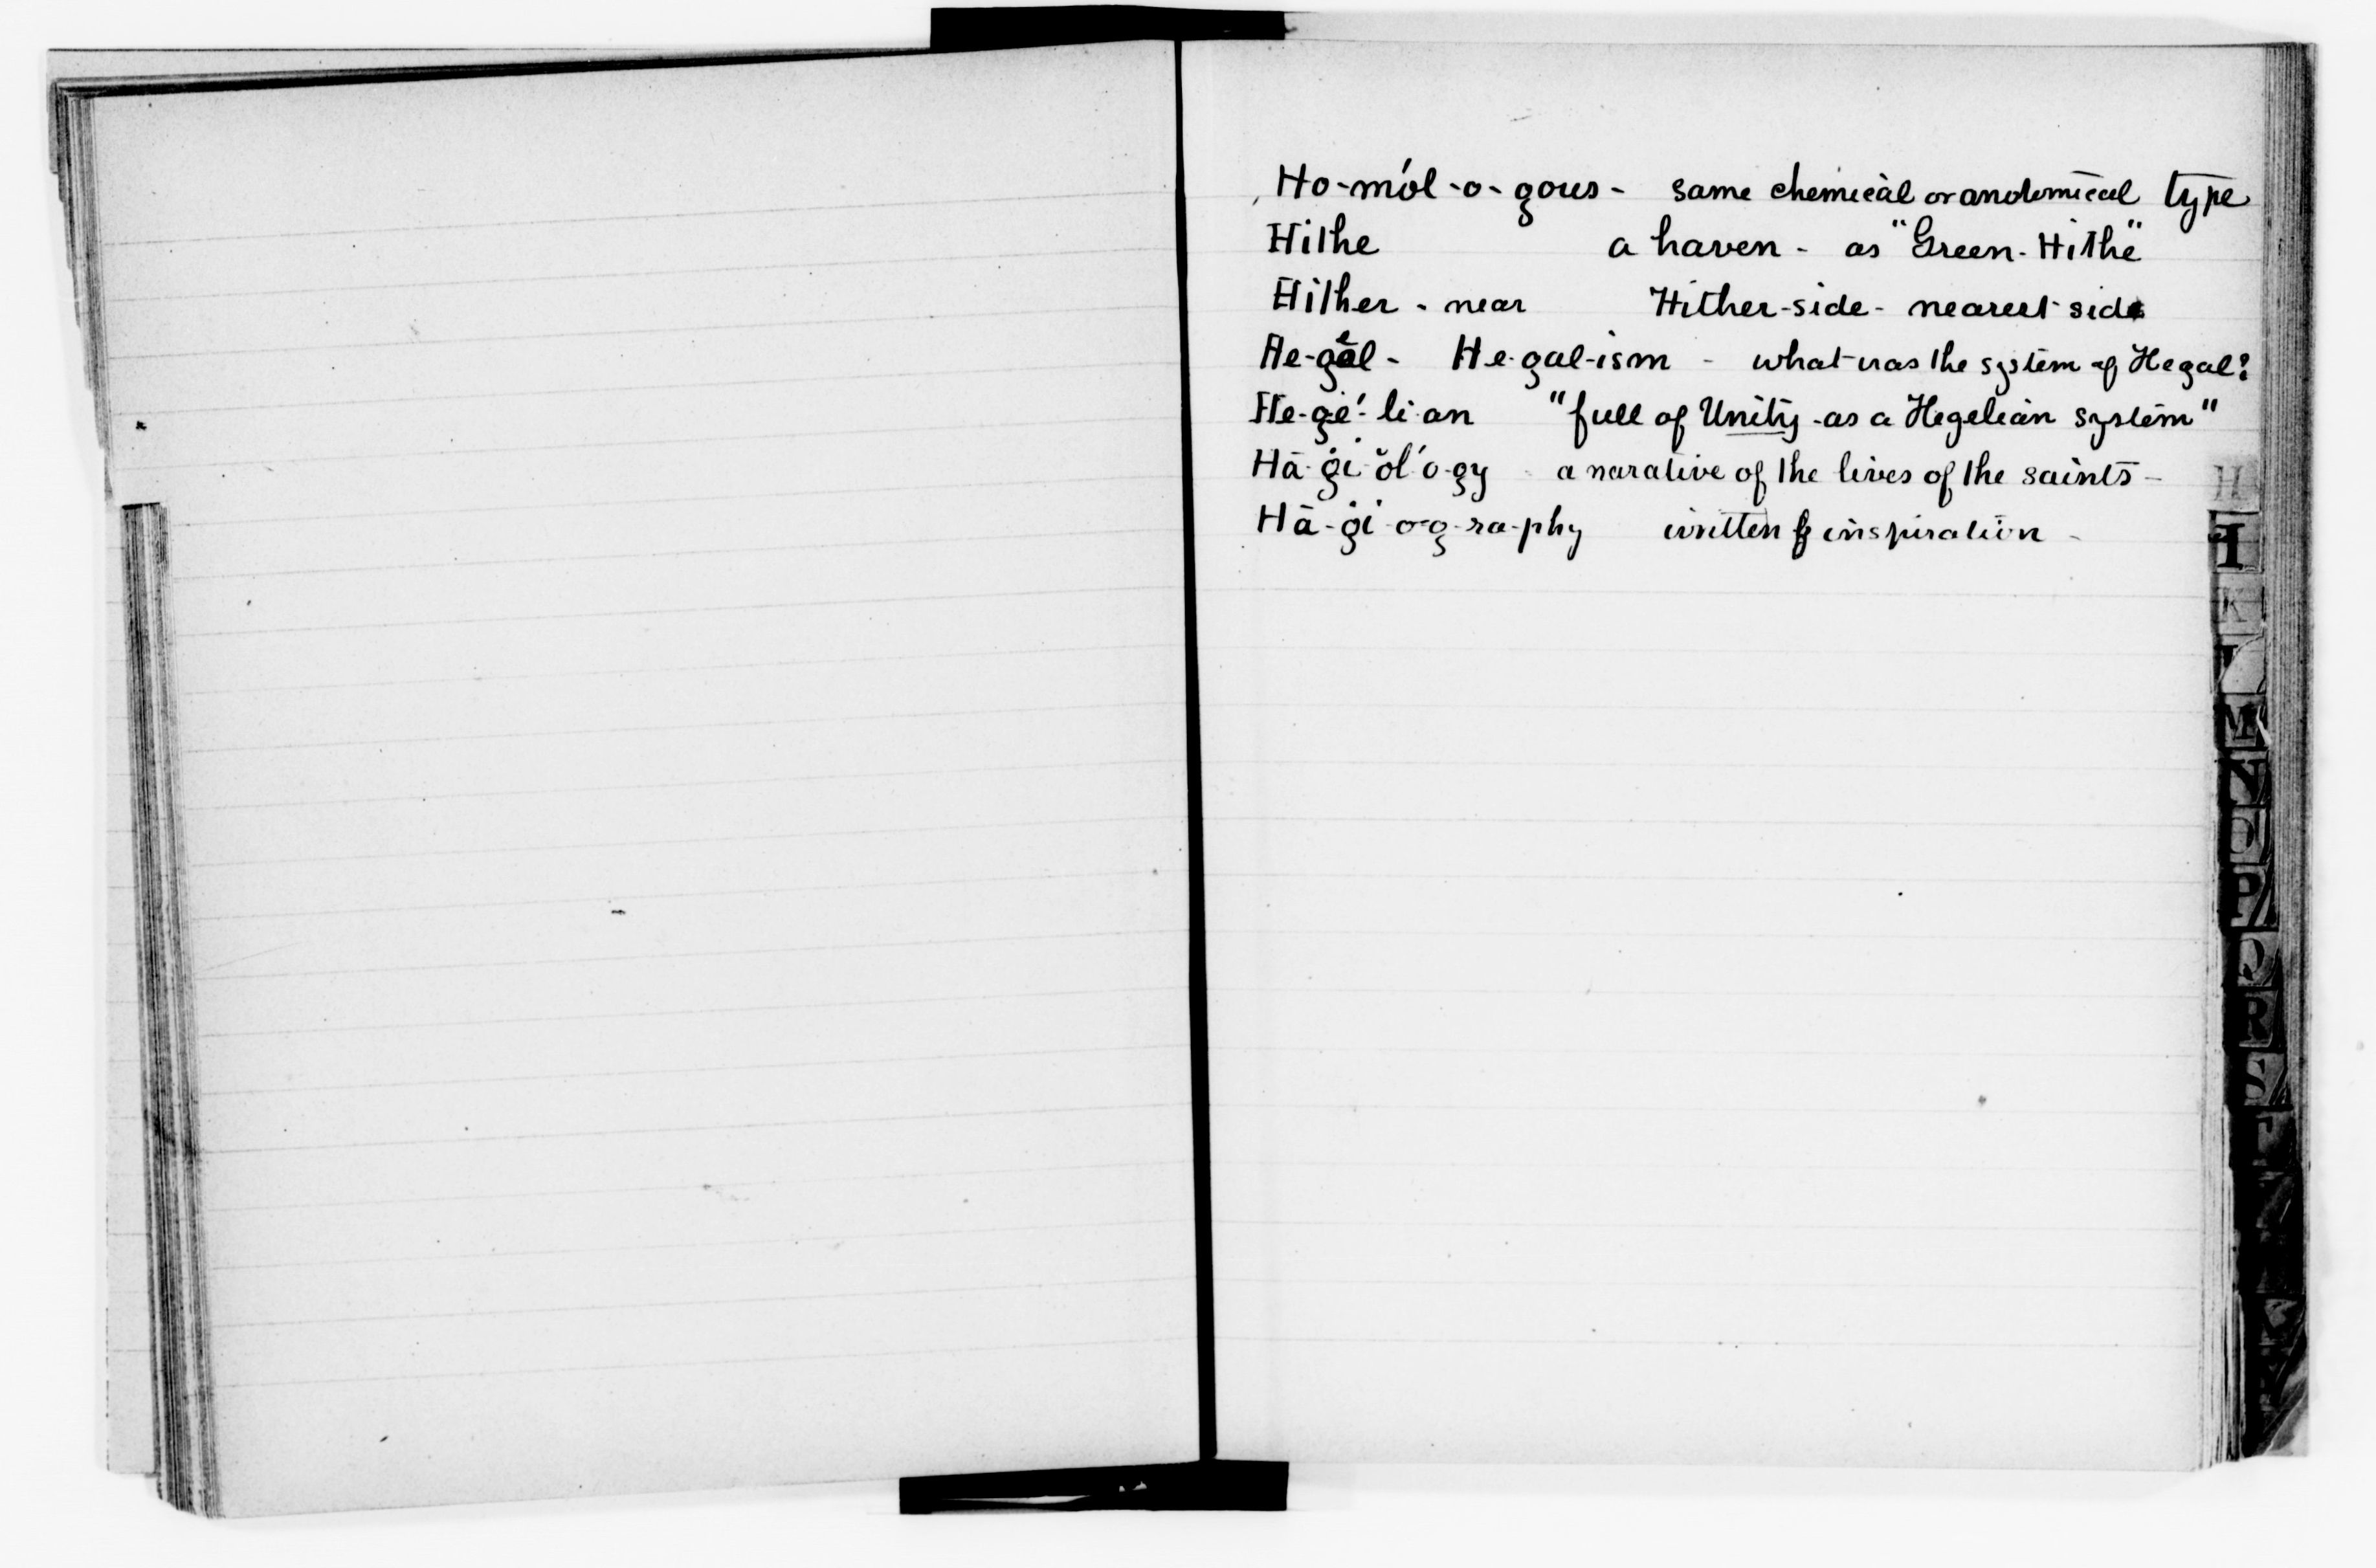 Ho-mól-o-gous - same chemical or anatomical type
Hithe a haven - as "Green-Hithe"
Hither - near Hither-side - nearest side
He-gel - He-gal-ism - what was the system of Hegal?
He-gé-li-an "full of Unity - as a Hegelian system"
Hā-gi-ŏl´o-gy - a narative of the lives of the saints -
Hā-gi-og-ra-phy written by inspiration -
H
I
K
L
M
N
O
P
Q
R
S
T